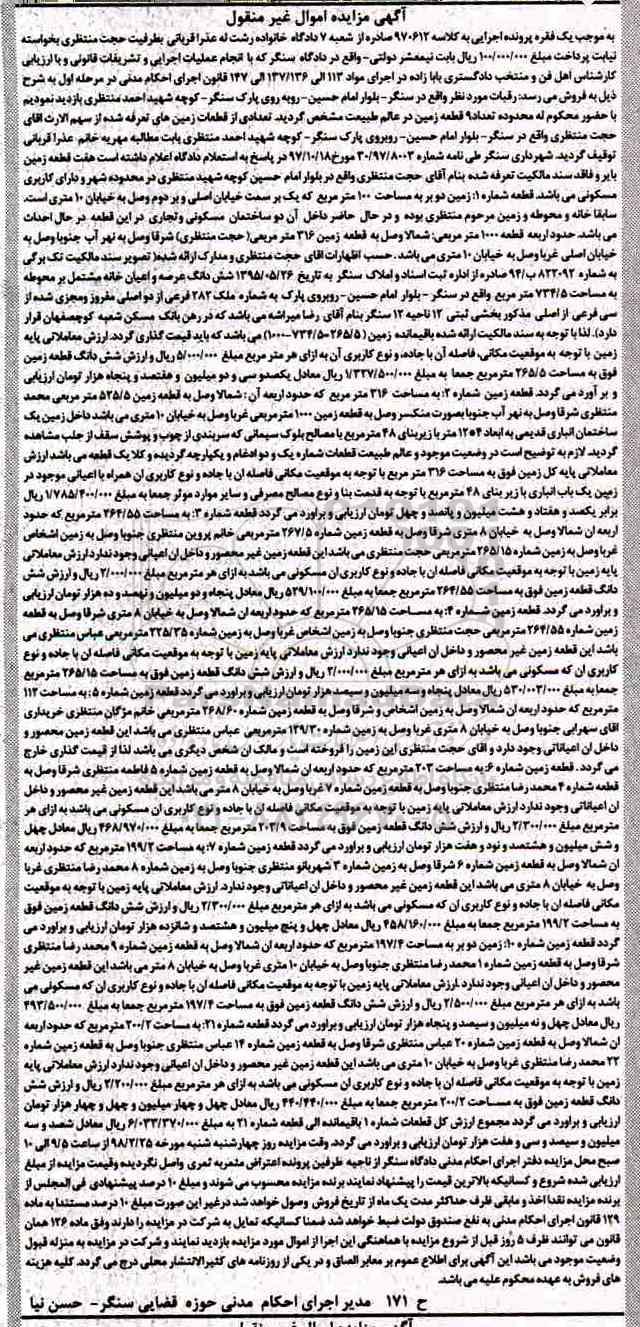 آگهی مزایده اموال غیر منقول
به موجب یک فقره پرونده اجرایی به کلاسه ۹۷۰۶۱۲ صادره از شعبه ۷ دادگاه خانواده رشت له عذرا قربانی بطرفیت حجت منتظری بخواسته
نیابت پرداخت مبلغ ۱۰۰/۰۰۰/۰۰۰ ریال بابت نیمعشر دولتی- واقع در دادگاه سنگر که با انجام عملیات اجرایی و تشریفات قانونی و با ارزیابی
کارشناس اهل فن و منتخب دادگستری بابا زاده در اجرای مواد ۱۱۳ الی ۱۳۷/۱۳۶ الی ۱۴۷ قانون اجرای احکام مدنی در مرحله اول به شرح
ذیل به فروش می رسد: رقبات مورد نظر واقع در سنگر- بلوار امام حسین- روبه روی پارک سنگر- کوچه شهید احمد منتظری بازدید نمودیم
با حضور محکوم له محدوده تعداد۹ قطعه زمین در عالم طبیعت مشخص گردید. تعدادی از قطعات زمین های تعرفه شده از سهم الارث آقای
حجت منتظری واقع در سنگر- بلوار امام حسین- روبروی پارک سنگر- کوچه شهید احمد منتظری بابت مطالبه مهریه خانم عذرا قربانی
توقیف گردید. شهرداری سنگر طی نامه شماره ۳۰/۹۷/۸۰۰۳ مورخ۹۷/۱۰/۱۸ در پاسخ به استعلام دادگاه اعلام داشته است هفت قطعه زمین
بایر و فاقد سند مالکیت تعرفه شده بنام آقای حجت منتظری واقع در بلوار امام حسین کوچه شهید منتظری در محدوده شهر و دارای کاربری
مسکونی می باشد. قطعه شماره ۱: زمین دو بر به مساحت ۱۰۰۰ متر مربع که یک بر سمت خیابان اصلی و بر دوم وصل به خیابان ۱۰ متری است.
سابقا خانه و محوطه و زمین مرحوم منتظری بوده و در حال حاضر داخل آن دو ساختمان مسکونی وتجاری در این قطعه در حال احداث
می باشد. حدود اربعه قطعه ۱۰۰۰ متر مربعی: شمالا وصل به قطعه زمین ۳۱۶ متر مربعی( حجت منتظری) شرقا وصل به نهر آب جنوبا وصل به
خیابان اصلی غربا وصل به خیابان ۱۰ متری می باشد . حسب اظهارات آقای حجت منتظری و مدارک ارائه شده( تصویر سند مالکیت تک برگی
به شماره ۸۲۲۰۹۲ ب/۹۴ صادره از اداره ثبت اسناد و املاک سنگر به تاریخ ۱۳۹۵/۰۵/۲۶ شش دانگ عرصه و اعیان خانه مشتمل بر محوطه
به مساحت ۷۳۴/۵ متر مربع واقع در سنگر - بلوار امام حسین- روبروی پارک به شماره ملک ۲۸۲ فرعی از دو اصلی مفروز ومجزی شده از
سی فرعی از اصلی مذکور بخشی ثبتی ۱۲ ناحیه ۱۲ سنگر بنام آقای رضا میراشه می باشد که در رهن بانک مسکن شعبه کوچصفهان قرار
دارد). لذا با توجه به سند مالکیت ارائه شده باقیمانده زمین (۲۶۵/۵=۷۳۴/۵-۱۰۰۰) می باشد که باید قیمت گذاری گردد. ارزش معاملاتی پایه
زمین با توجه به موقعیت مکانی، فاصله آن با جاده، و نوع کاربری آن به ازای هر متر مربع مبلغ ۵/۰۰۰/۰۰۰ ریال و ارزش شش دانگ قطعه زمین
فوق به مساحت ۲۶۵/۵ مترمربع جمعا به مبلغ ۱/۳۲۷/۵۰۰/۰۰۰ ریال معادل یکصدو سی و دو میلیون و هفتصد و پنجاه هزار تومان ارزیابی
و بر آورد می گردد. قطعه زمین شماره ۲: به مساحت ۳۱۶ متر مربع که حدود اربعه آن : شمالا وصل به قطعه زمین ۵۲۵/۵ متر مربعی محمد
منتظری شرقا وصل به نهر آب جنوبا بصورت منکسر وصل به قطعه زمین ۱۰۰۰ مترمربعی غربا وصل به خیابان ۱۰ متری می باشد داخل زمین یک
ساختمان انباری قدیمی به ابعاد ۴*۱۲ متر با زیربنای ۴۸ مترمربع با مصالح بلوک سیمانی که سربندی از چوب و پوشش سقف از حلب مشاهده
گردید. لازم به توضیح است در وضعیت موجود و عالم طبیعت قطعات شماره یک و دو ادغام و یکپارچه گردیده و کلا یک قطعه می باشد ارزش
معاملاتی پایه کل زمین فوق به مساحت ۳۱۶ متر مربع با توجه به موقعیت مکانی فاصله ان با جاده و نوع کاربری ان همراه با اعیانی موجود در
زمین یک باب انباری با زیر بنای ۴۸ مترمربع با توجه به قدمت بنا و نوع مصالح مصرفی و سایر موارد موثر جمعا به مبلغ ۱/۷۸۵/۴۰۰/۰۰۰ ریال
برابر یکصد و هفتاد و هشت میلیون و پانصد و چهل تومان ارزیابی و براورد می گردد قطعه شماره ۳: به مساحت ۲۶۴/۵۵ مترمربع که حدود
اربعه ان شمالا وصل به خیابان ۸ متری شرقا وصل به قطعه زمین شماره ۲۶۷/۵ مترمربعی خانم پروین منتظری جنوبا وصل به زمین اشخاص
غربا وصل به زمین شماره ۲۶۵/۱۵ مترمربعی حجت منتظری می باشد این قطعه زمین غیر محصور و داخل ان اعیانی وجود ندارد ارزش معاملاتی
پایه زمین با توجه به موقعیت مکانی فاصله ان با جاده و نوع کاربری ان مسکونی می باشد به ازای هر مترمربع مبلغ ۲/۰۰۰/۰۰۰ ریال و ارزش شش
دانگ قطعه زمین فوق به مساحت ۲۶۴/۵۵ مترمربع جمعا به مبلغ ۵۲۹/۱۰۰/۰۰۰ ریال معادل پنجاه و دو میلیون و نهصد و ده هزار تومان ارزیابی
و براورد می گردد. قطعه زمین شماره ۴: به مساحت ۲۶۵/۱۵ مترمربع که حدود اربعه ان شمالا وصل به خیابان ۸ متری شرقا وصل به قطعه
زمین شماره ۲۶۴/۵۵ مترمربعی حجت منتظری جنوبا وصل به زمین اشخاص غربا وصل به زمین شماره ۲۲۵/۳۵ مترمربعی عباس منتظری می
باشد این قطعه زمین غیر محصور و داخل ان اعیانی وجود ندارد ارزش معاملاتی پایه زمین با توجه به موقعیت مکانی فاصله ان با جاده و نوع
کاربری ان که مسکونی می باشد به ازای هر مترمربع مبلغ ۲/۰۰۰/۰۰۰ ریال و ارزش شش دانگ قطعه زمین فوق به مساحت ۲۶۵/۱۵ مترمربع
جمعا به مبلغ ۵۳۰/۰۰۳/۰۰۰ ریال معادل پنجاه و سه میلیون و سیصد هزار تومان ارزیابی و براورد می گردد قطعه زمین شماره ۵: به مساحت ۱۱۲
مترمربع که حدود اربعه ان شمالا وصل به زمین اشخاص و شرقا وصل به قطعه زمین شماره ۲۶۸/۶۰ مترمربعی خانم مژگان منتظری خریداری
آقای سهرابی جنوبا وصل به خیابان ۸ متری غربا وصل به زمین شماره ۱۲۹/۳۰ مترمربعی عباس منتظری می باشد این قطعه زمین محصور و
داخل ان اعیاناتی وجود دارد و اقای حجت منتظری این زمین را فروخته است و مالک ان شخص دیگری می باشد لذا از قیمت گذاری خارج
می گردد . قطعه زمین شماره ۶: به مساحت ۲۰۳ مترمربع که حدود اربعه ان شمالا وصل به قطعه زمین شماره ۵ فاطمه منتظری شرقا وصل به
قطعه شماره ۴ محمد رضا منتظری جنوبا وصل به قطعه زمین شماره ۷ غربا وصل به خیابان ۸ متر می باشد این قطعه زمین غیر محصور و داخل
ان اعیاناتی وجود ندارد ارزش معاملاتی پایه زمین با توجه به موقعیت مکانی فاصله ان با جاده و نوع کاربری ان مسکونی می باشد به ازای هر
مترمربع مبلغ ۲/۳۰۰/۰۰۰ ریال و ارزش شش دانگ قطعه زمین فوق به مساحت ۲۰۳/۹ مترمربع جمعا به مبلغ ۴۶۸/۹۷۰/۰۰۰ ریال معادل چهل
و شش میلیون و هشتصد و نود و هفت هزار تومان ارزیابی و براورد می گردد قطعه زمین شماره ۷: به مساحت ۱۹۹/۲ مترمربع که حدود اربعه
ان شمالا وصل به قطعه زمین شماره ۶ شرقا وصل به زمین شماره ۳ شهربانو منتظری جنوبا وصل به زمین شماره ۸ محمد رضا منتظری غربا
وصل به خیابان ۸ متری می باشد این قطعه زمین غیر محصور و داخل ان اعیاناتی وجود ندارد. ارزش معاملاتی پایه زمین با توجه به موقعیت
مکانی فاصله ان با جاده و نوع کاربری ان که مسکونی می باشد به ازای هر مترمربع مبلغ ۲/۳۰۰/۰۰۰ ریال و ارزش شش دانگ قطعه زمین فوق
به مساحت ۱۹۹/۲ مترمربع جمعا به مبلغ ۴۵۸/۱۶۰/۰۰۰ ریال معادل چهل و پنج میلیون و هشتصد و شانزده هزار تومان ارزیابی و براورد می
گردد قطعه زمین شماره ۱۰: زمین دو بر به مساحت ۱۹۷/۴ مترمربع که حدود اربعه ان شمالا وصل به قطعه زمین شماره ۹ محمد رضا منتظری
شرقا وصل به قطعه زمین شماره ۱ محمد رضا منتظری جنوبا وصل به خیابان ۱۰ متری غربا وصل به خیابان ۸ متر می باشد این قطعه زمین غیر
محصور و داخل ان اعیانی وجود ندارد .ارزش معاملاتی پایه زمین با توجه به موقعیت مکانی فاصله ان با جاده و نوع کاربری ان که مسکونی می
باشد به ازای هر مترمربع مبلغ ۲/۵۰۰/۰۰۰ ریال و ارزش شش دانگ قطعه زمین فوق به مساحت ۱۹۷/۴ مترمربع جمعا به مبلغ ۴۹۳/۵۰۰/۰۰۰
ریال معادل چهل و نه میلیون و سیصد و پنجاه هزار تومان ارزیابی و براورد می گردد قطعه شماره ۲۱: به مساحت ۲۰۰/۲ مترمربع که حدود اربعه
ان شمالا وصل به قطعه زمین شماره ۲۰ عباس منتظری شرقا وصل به قطعه زمین شماره ۱۴ عباس منتظری جنوبا وصل به قطعه زمین شماره
۲۲ محمد رضا منتظری غربا وصل به خیابان ۱۰ متری می باشد این قطعه زمین غیر محصور و داخل ان اعیانی وجود ندارد ارزش معاملاتی پایه
زمین با توجه به موقعیت مکانی فاصله ان با جاده و نوع کاربری ان مسکونی می باشد به ازای هر مترمربع مبلغ ۲/۲۰۰/۰۰۰ ریال و ارزش شش
دانگ قطعه زمین فوق به مساحت ۲۰۰/۲ مترمربع جمعا به مبلغ ۴۴۰/۴۴۰/۰۰۰ ریال معادل چهل و چهار میلیون و چهل و چهار هزار تومان
ارزیابی و براورد می گردد مجموع ارزش کل قطعات شماره ۱ باقیمانده الی قطعه شماره ۲۱ به مبلغ ۶/۰۳۳/۳۷۰/۰۰۰ ریال معادل شصد و سه
میلیون و سیصد و سی و هفت هزار تومان ارزیابی و براورد می گردد. وقت مزایده روز چهارشنبه شنبه مورخه ۹۸/۲/۲۵ از ساعت ۹/۵ الی ۱۰
صبح محل مزایده دفتر اجرای احکام مدنی دادگاه سنگر از ناحیه طرفین پرونده اعتراض مثمربه ثمری واصل نگردیده وقیمت مزایده از مبلغ
ارزیابی شده شروع و کسانیکه بالاترین قیمت را پیشنهاد نمایند برنده مزایده محسوب می شوند و مبلغ ۱۰ درصد پیشنهادی فی المجلس از
برنده مزایده نقدا اخذ و مابقی ظرف حداکثر مدت یک ماه از تاریخ فروش وصول خواهد شد درغیر این صورت مبلغ ۱۰ درصد مستندا به ماده
۱۲۹ قانون اجرای احکام مدنی به نفع صندوق دولت ضبط خواهد شد ضمنا کسانیکه تمایل به شرکت در مزایده را دارند وفق ماده ۱۲۶ همان
قانون می توانند ظرف ۵ روز قبل از شروع مزایده با هماهنگی این اجرا از اموال مورد مزایده بازدید نمایند و شرکت در مزایده به منزله قبول
وضعیت موجود می باشد این آگهی برای اطلاع عموم بر معابر الصاق و در یکی از روزنامه های کثیرالانتشار محلی درج می گردد. کلیه هزینه
های فروش به عهده محکوم علیه می باشد.
ح ۱۷۱ مدیر اجرای احکام مدنی حوزه قضایی سنگر- حسن نیا